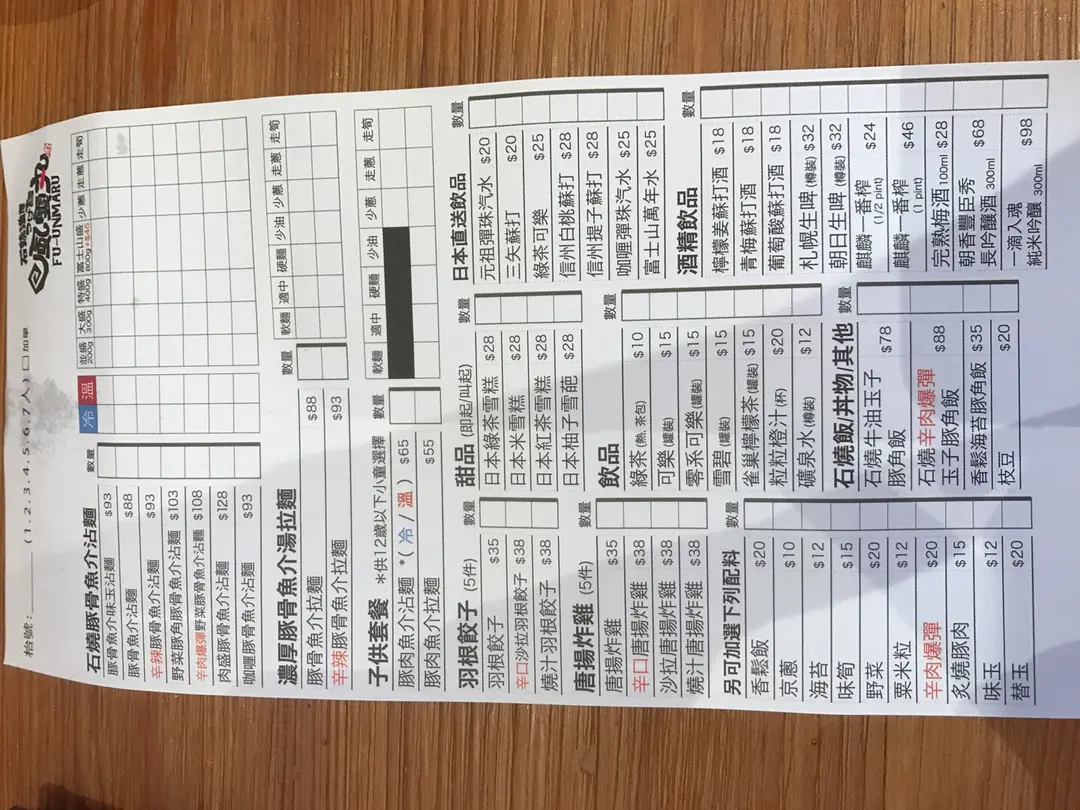 枱號: ______ ( 1 . 2 . 3 . 4 . 5 . 6 . 7 人 ) □ 加單
風雲丸
FU-UNMARU
石燒豚骨魚介沾麵 數量 冷 溫 並盛 200g 大盛 300g 特盛 400g 富士山盛 800g+$45 少蔥 走蔥 走筍
豚骨魚介味玉沾麵 $93
豚骨魚介沾麵 $88
辛辣豚骨魚介沾麵 $93
野菜豚角豚骨魚介沾麵 $103
辛肉爆彈野菜豚骨魚介沾麵 $108
肉盛豚骨魚介沾麵 $128
咖喱豚骨魚介沾麵 $93
濃厚豚骨魚介湯拉麵 數量 軟麵 適中 硬麵 少油 少蔥 走蔥 走筍
豚骨魚介拉麵 $88
辛辣豚骨魚介拉麵 $93
子供套餐 *供12歲以下小童選擇 數量 軟麵 適中 硬麵 少油 少蔥 走蔥 走筍
豚肉魚介沾麵 * ( 冷 / 溫 ) $65
豚肉魚介拉麵 $55
羽根餃子 (5件) 數量
羽根餃子 $35
辛口沙拉羽根餃子 $38
燒汁羽根餃子 $38
唐揚炸雞 (5件) 數量
唐揚炸雞 $35
辛口唐揚炸雞 $38
沙拉唐揚炸雞 $38
燒汁唐揚炸雞 $38
另可加選下列配料 數量
香鬆飯 $20
京蔥 $10
海苔 $12
味筍 $15
野菜 $20
粟米粒 $12
辛肉爆彈 $20
炙燒豚肉 $15
味玉 $12
替玉 $20
甜品 (即起/叫起) 數量
日本綠茶雪糕 $28
日本米雪糕 $28
日本紅茶雪糕 $28
日本柚子雪葩 $28
飲品 數量
綠茶 (熱, 茶包) $10
可樂 (罐裝) $15
零系可樂 (罐裝) $15
雪碧 (罐裝) $15
雀巢檸檬茶 (罐裝) $15
粒粒橙汁 (杯) $20
礦泉水 (樽裝) $12
石燒飯/丼物/其他 數量
石燒牛油玉子
豚角飯 $78
石燒辛肉爆彈
玉子豚角飯 $88
香鬆海苔豚角飯 $35
枝豆 $20
日本直送飲品 數量
元祖彈珠汽水 $20
三矢蘇打 $20
綠茶可樂 $25
信州白桃蘇打 $28
信州提子蘇打 $28
咖喱彈珠汽水 $25
富士山萬年水 $25
酒精飲品 數量
檸檬姜蘇打酒 $18
青梅蘇打酒 $18
葡萄酸蘇打酒 $18
札幌生啤 (樽裝) $32
朝日生啤 (樽裝) $32
麒麟一番榨 $24
(1/2 pint)
麒麟一番榨 $46
(1 pint)
完熟梅酒 100ml $28
朝香豐臣秀
長吟釀酒 300ml $68
一滴入魂
純米吟釀 300ml $98